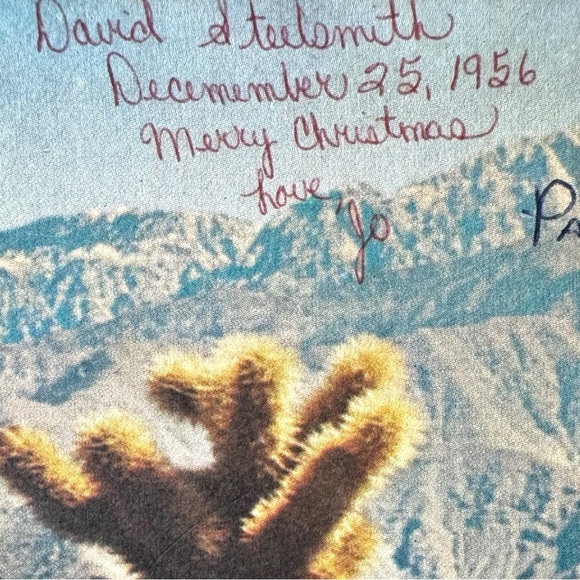 David Steelsmith
Decemember 25, 1956
Merry Christmas
Love,
Jo
PA